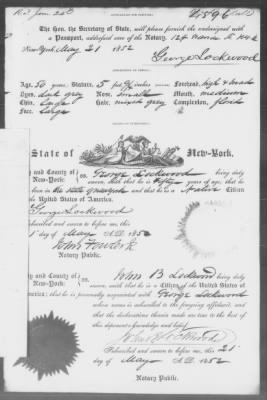 The Hon. the Secretary of State, will please furnish the undersigned with
a Passport, addressed care of the Notary.
New York, May 21 1852
George Lockwood
Age, 50 years, Stature, 5 feet inches
Forehead, high &
Eyes, dark grey
Nose, small
Mouth, medium
Chin, Large
Hair, grey
Complexion, florid
Face, Large
State of New-York.
and County of
New-York: ss. George Lockwood being duly
sworn, saith that he is fifty years of age, that he
in the State of and is a Native Citizen
the United States of America.
George Lockwood
Subscribed and sworn to before me, this
day of May A.D. 1852
Notary Public.
and County of
New-York: ss. John B Lockwood being duly
sworn, saith that he is a Citizen of the United States of
America; that he is personally acquainted with George Lockwood
whose name is subscribed to the foregoing affidavit, and
that the declarations therein made are true to the best of
this deponent's knowledge and belief.
Subscribed and sworn to before me, this 21
day of May A.D. 1852
Notary Public.